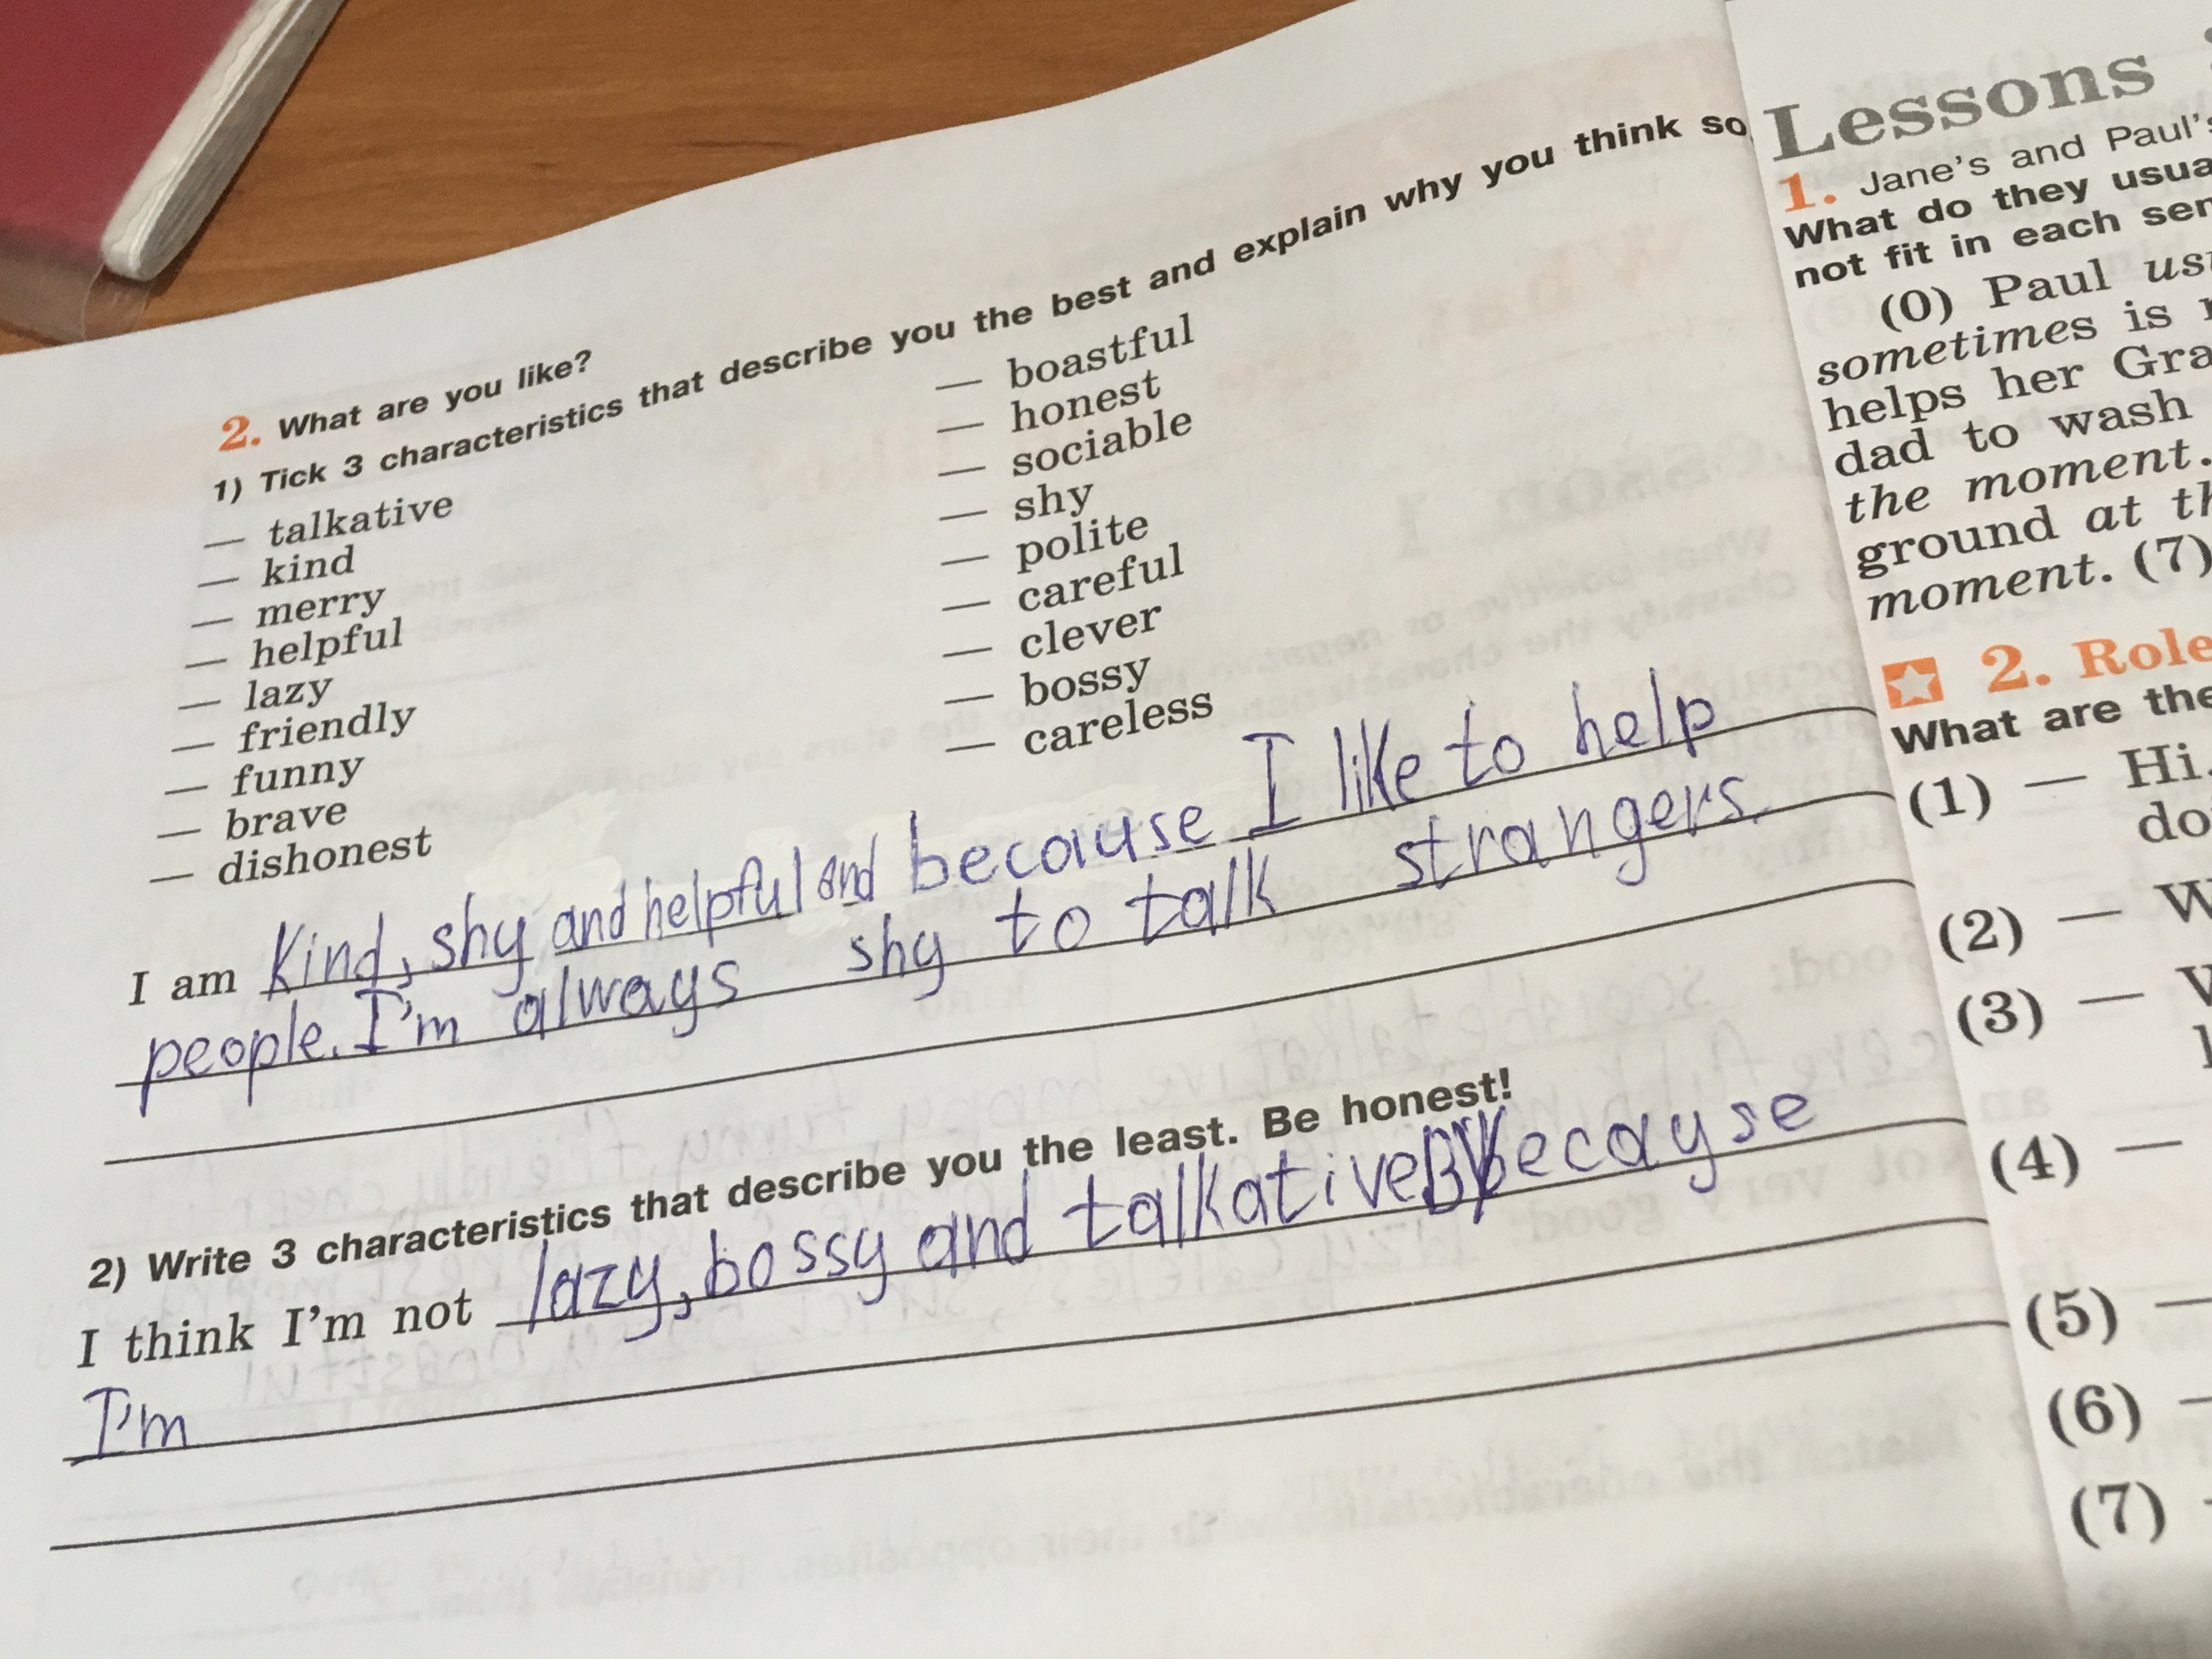 2. What are you like?
1) Tick 3 characteristics that describe you the best and explain why you think so
— talkative
— kind
— merry
— helpful
— lazy
— friendly
— funny
— brave
— dishonest
— boastful
— honest
— sociable
— shy
— polite
— careful
— clever
— bossy
— careless
I am Kind, shy and helpful and because I like to help
people. I'm always shy to talk strangers.
2) Write 3 characteristics that describe you the least. Be honest!
I think I'm not lazy, bossy and talkative becayse
I'm
Lessons
1. Jane's and Paul's
What do they usua
not fit in each sen
(0) Paul us
sometimes is
helps her Gra
dad to wash
the moment.
ground at th
moment. (7)
2. Role
What are the
(1) — Hi.
do
(2) — W
(3) —
(4) —
(5) —
(6) —
(7) -